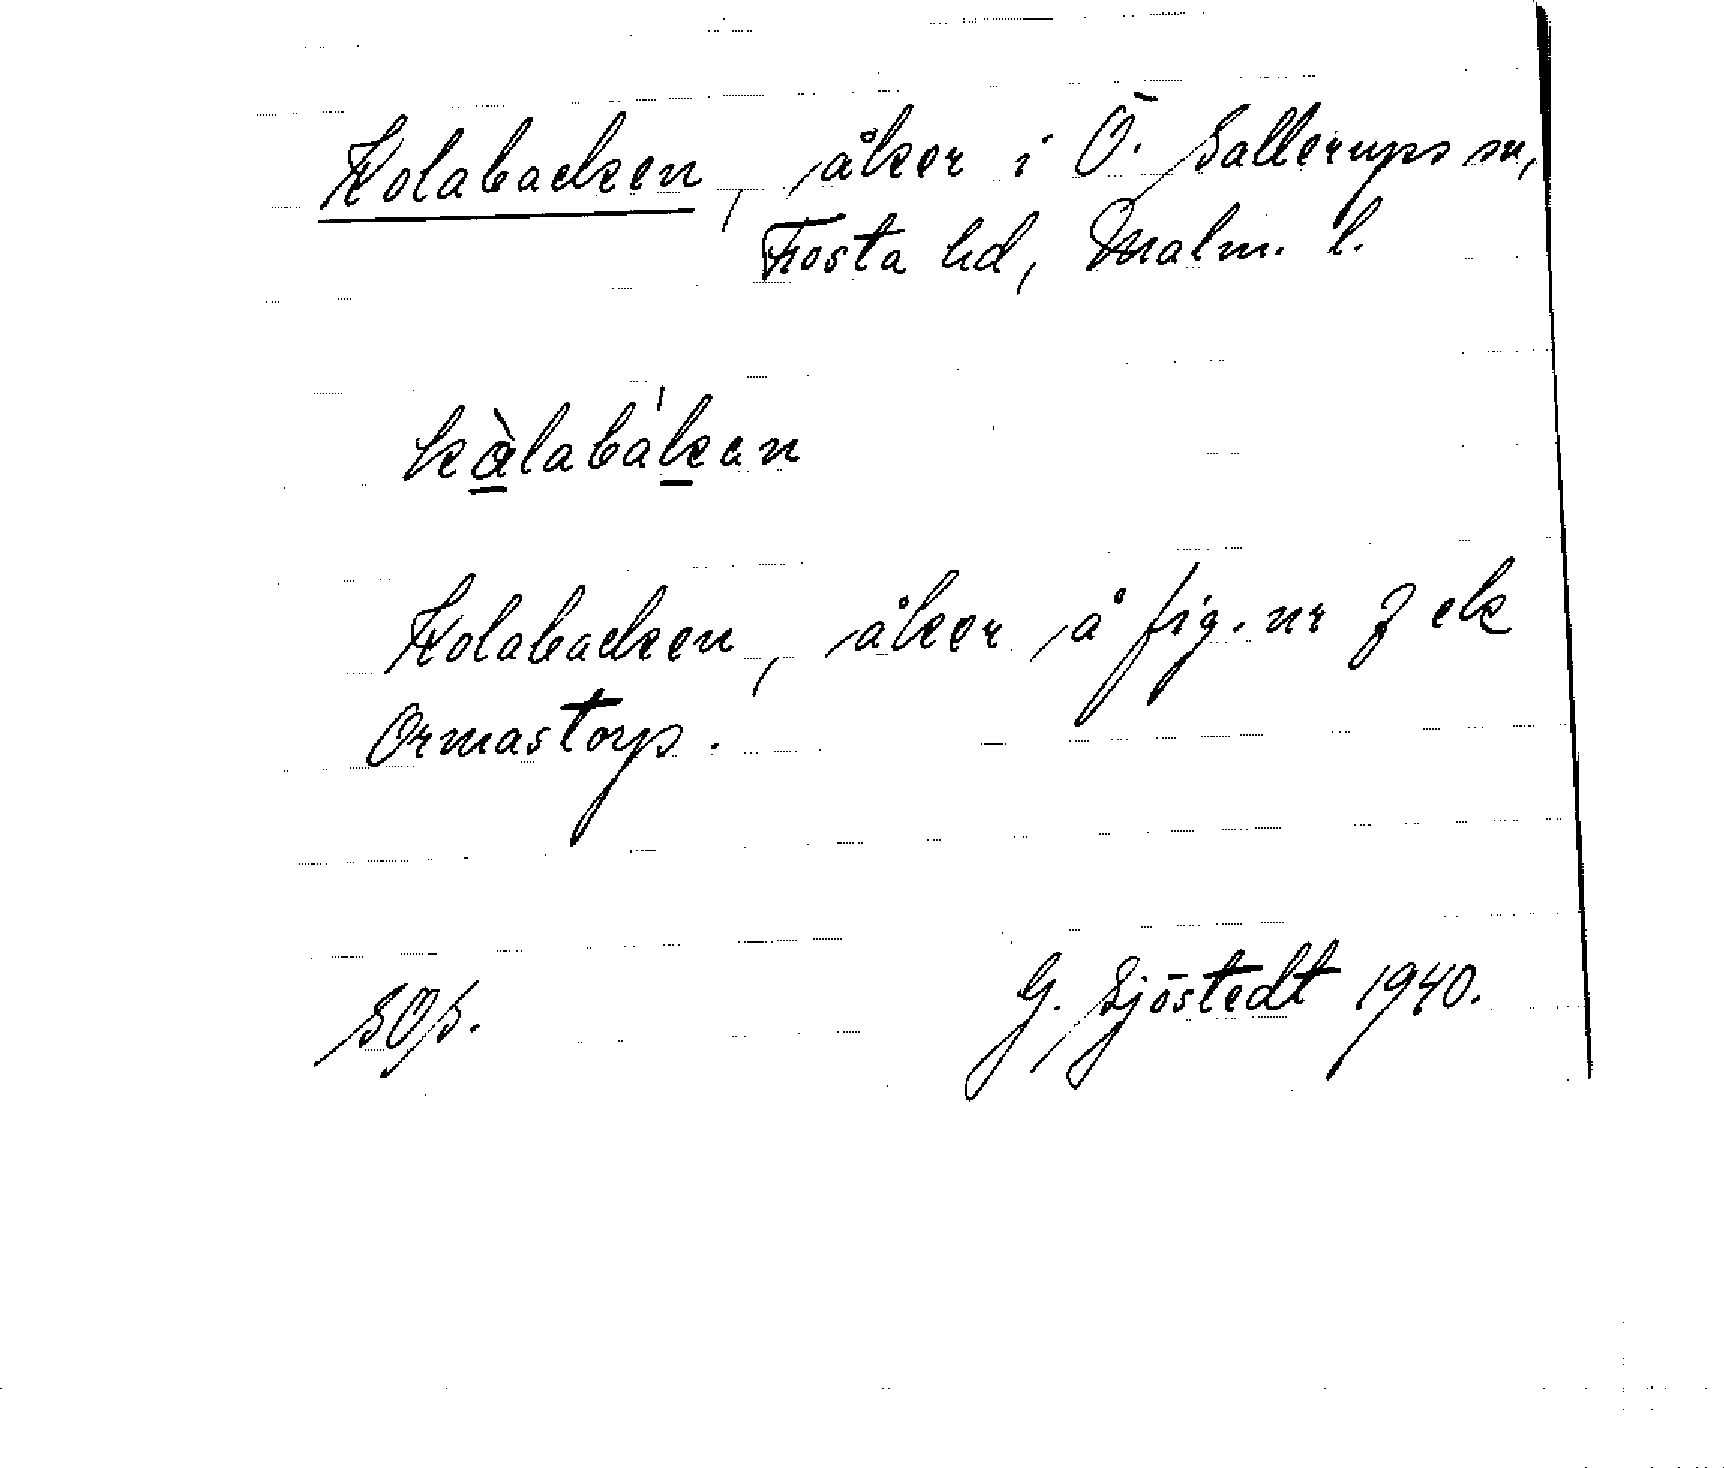 Kolabacken, åker i Ö. Sallerups sn,
Frosta hd, Malm. l.
kàlabákan
Kolabacken, åker å fig. nr 7 ek
Ormastorp.
SOS.
G. Sjöstedt 1940.